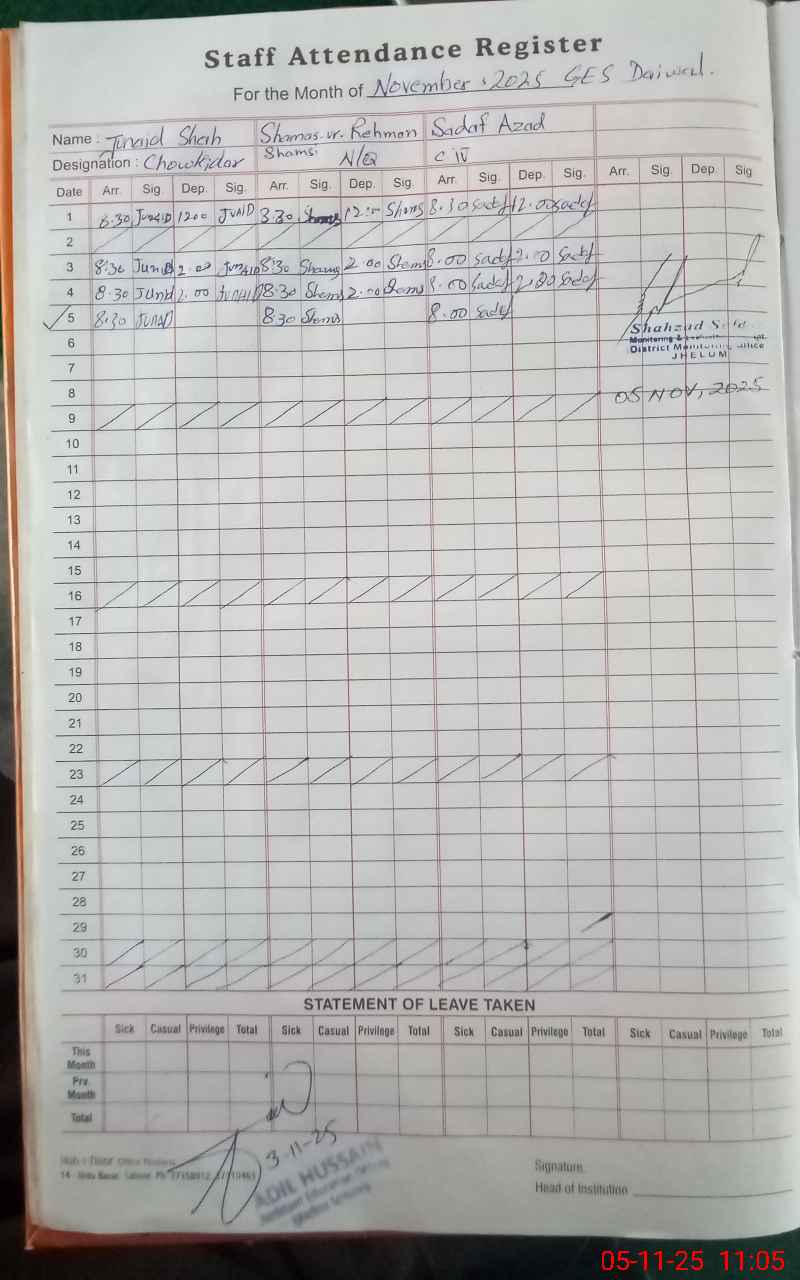 Staff Attendance Register
For the Month of November, 2025 GES Daiwal.
Name : Junaid Sheih Shamas.ur.Rehman Sadaf Azad
Designation : Chowkidar Shams. N/Q C IV
Date Arr. Sig. Dep. Sig. Arr. Sig. Dep. Sig. Arr. Sig. Dep. Sig. Arr. Sig. Dep. Sig
1 8.30 JUNAID 12.00 JUNAID 8.30 Shams 12.00 Shams 8.30 Sadaf 12.00 Sadaf
2
3 8:30 Junid 2.00 JUNAID 8:30 Shams 2.00 Shams 8.00 Sadaf 2.00 Sadaf
4 8.30 Junid 2.00 JUNAID 8.30 Shams 2.00 Shams 8.00 Sadaf 2.00 Sadaf
5 8.30 JUNAD 8.30 Shams 8.00 Sadaf
6
Shahzad
District Monitoring Office
JHELUM
7
8
05 NOV, 2025
9
10
11
12
13
14
15
16
17
18
19
20
21
22
23
24
25
26
27
28
29
30
31
STATEMENT OF LEAVE TAKEN
Sick Casual Privilege Total Sick Casual Privilege Total Sick Casual Privilege Total Sick Casual Privilege Total
This Month
Prv. Month
Total
3-11-25
ADIL HUSSAIN
Assistant Education
Signature
Head of Institution
05-11-25 11:05